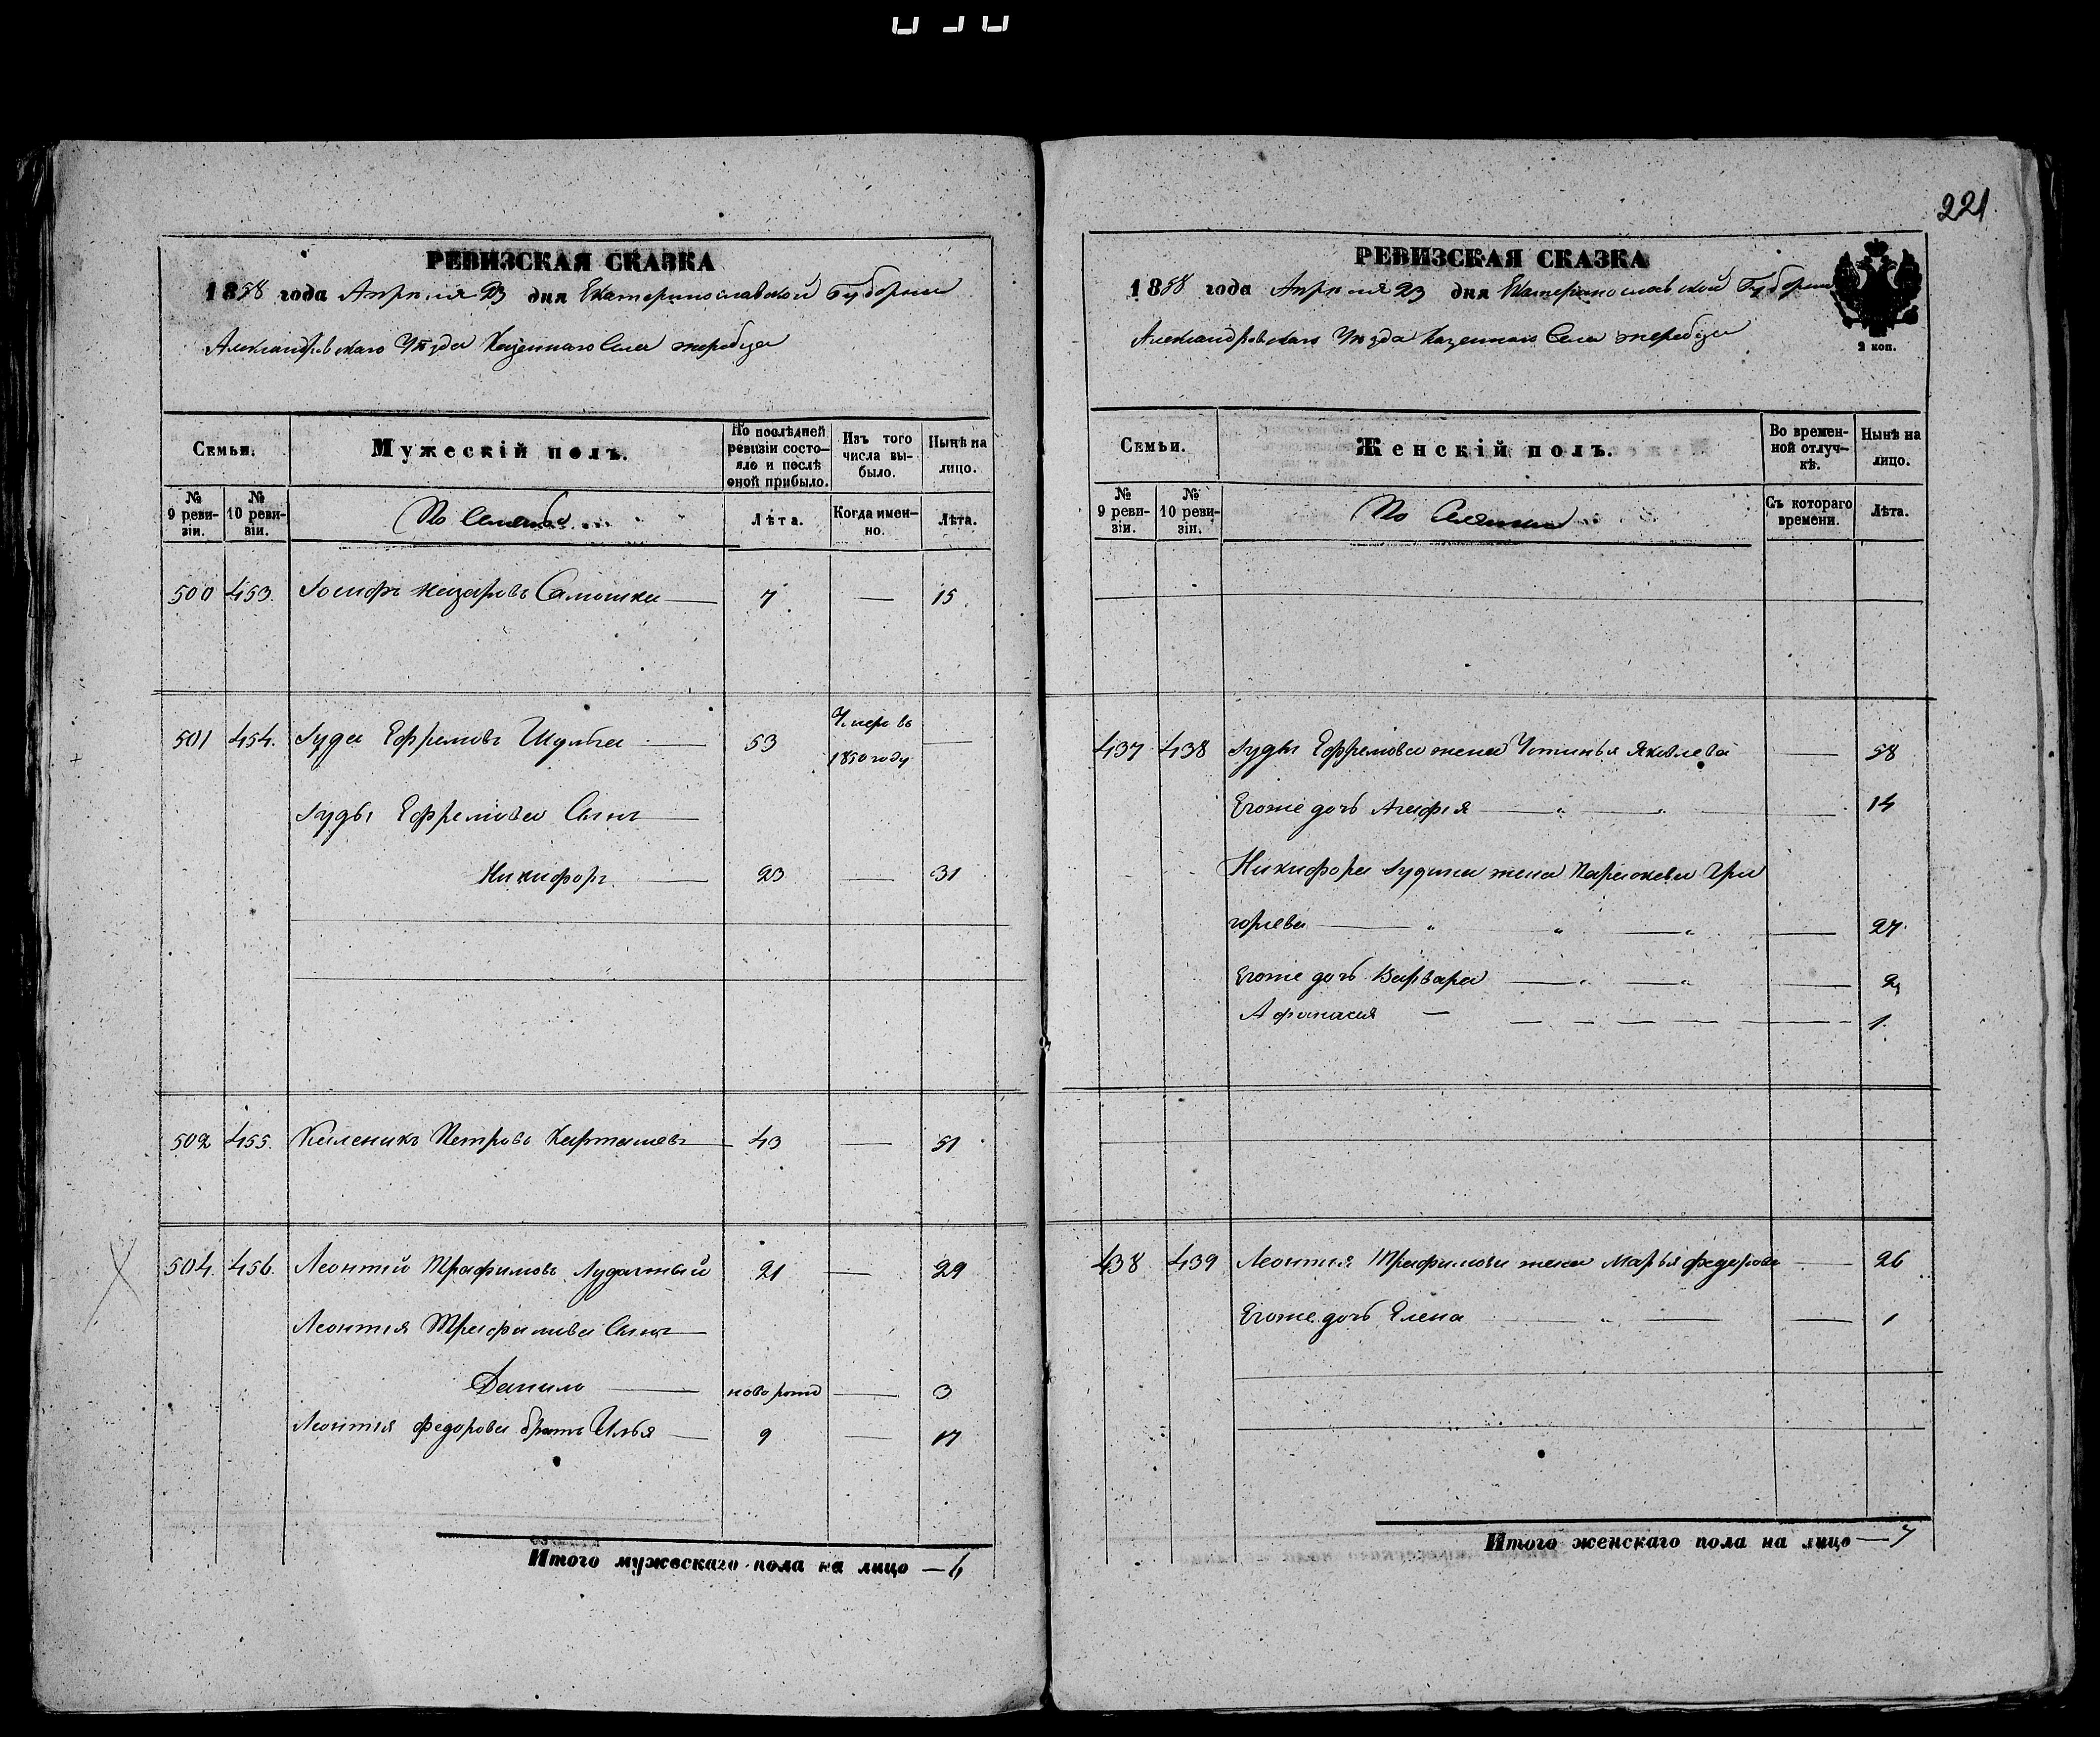 221.
РЕВИЗСКАЯ СКАЗКА
1858 года Апреля 23 дня Екатеринославской Губернии
Александровскаго Уѣзда Казеннаго Села Жеребца
Семьи.
Мужескій полъ.
По послѣдней ревизіи состояло и послѣ оной прибыло.
Изъ того числа выбыло.
Нынѣ на лицо.
№ 9 ревизіи.
№ 10 ревизіи.
Лѣта.
Когда именно.
Лѣта.
500 453. Іосифъ Назаровъ 7 — 15.
501 454. Іуда Ефремовъ Шульга — 53 Умеръ въ 1850 году —
Іуды Ефремова Сынъ —
Никифоръ — 23 — 31
502 455. Каленикъ Петровъ Карташевъ 43 — 51
504. 456. Леонтій Трафимовъ 21 — 29
Леонтія Трафимова Сынъ —
Данило — новорожд — 3
Леонтія Федорова братъ Илья — 9 — 17
Итого мужескаго пола на лицо — 6
РЕВИЗСКАЯ СКАЗКА
1858 года Апреля 23 дня Екатеринославской Губернии
Александровскаго Уѣзда Казеннаго Села Жеребца
2 коп.
Семьи.
Женскій полъ.
Во временной отлучкѣ.
Нынѣ на лицо.
№ 9 ревизіи.
№ 10 ревизіи.
Съ котораго времени.
Лѣта.
437 438 Іуды Ефремова жена Устинья Яковлева — 58
Егоже дочь Агафія — " — " — 14
Никифора Іудина жена Параскева Гри
горьева — " " — " — 27.
Егоже дочь Варвара — " — " — 2
Афанасія — — — — — — — 1.
438 439 Леонтія Трафимова жена Марья Федорова — 26
Егоже дочь Елена — " — — 1
Итого женскаго пола на лицо — 7